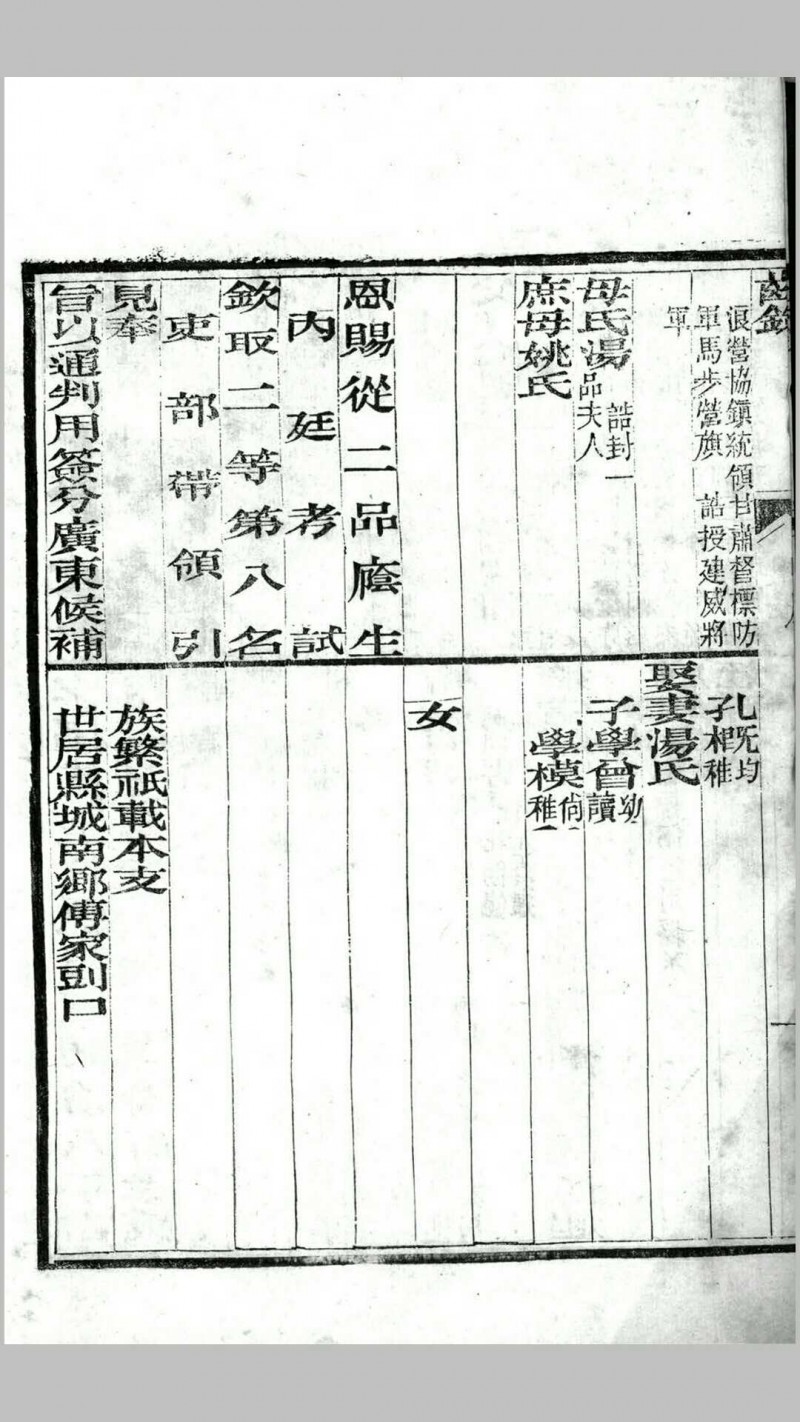 齒錄
浪營協鎮統領甘肅督標防
軍馬步營旗 誥授建威將
軍
母氏湯 誥封一
品夫人
庶母姚氏
恩賜從二品廕生
內廷考試
欽取二等第八名
吏部帶領引
見奉
旨以通判用簽分廣東候補
孔旣均
孔相稚
娶妻湯氏
子學曾幼
讀
學模尙
稚
女
族繁祇載本支
世居縣城南鄉傅家剅口